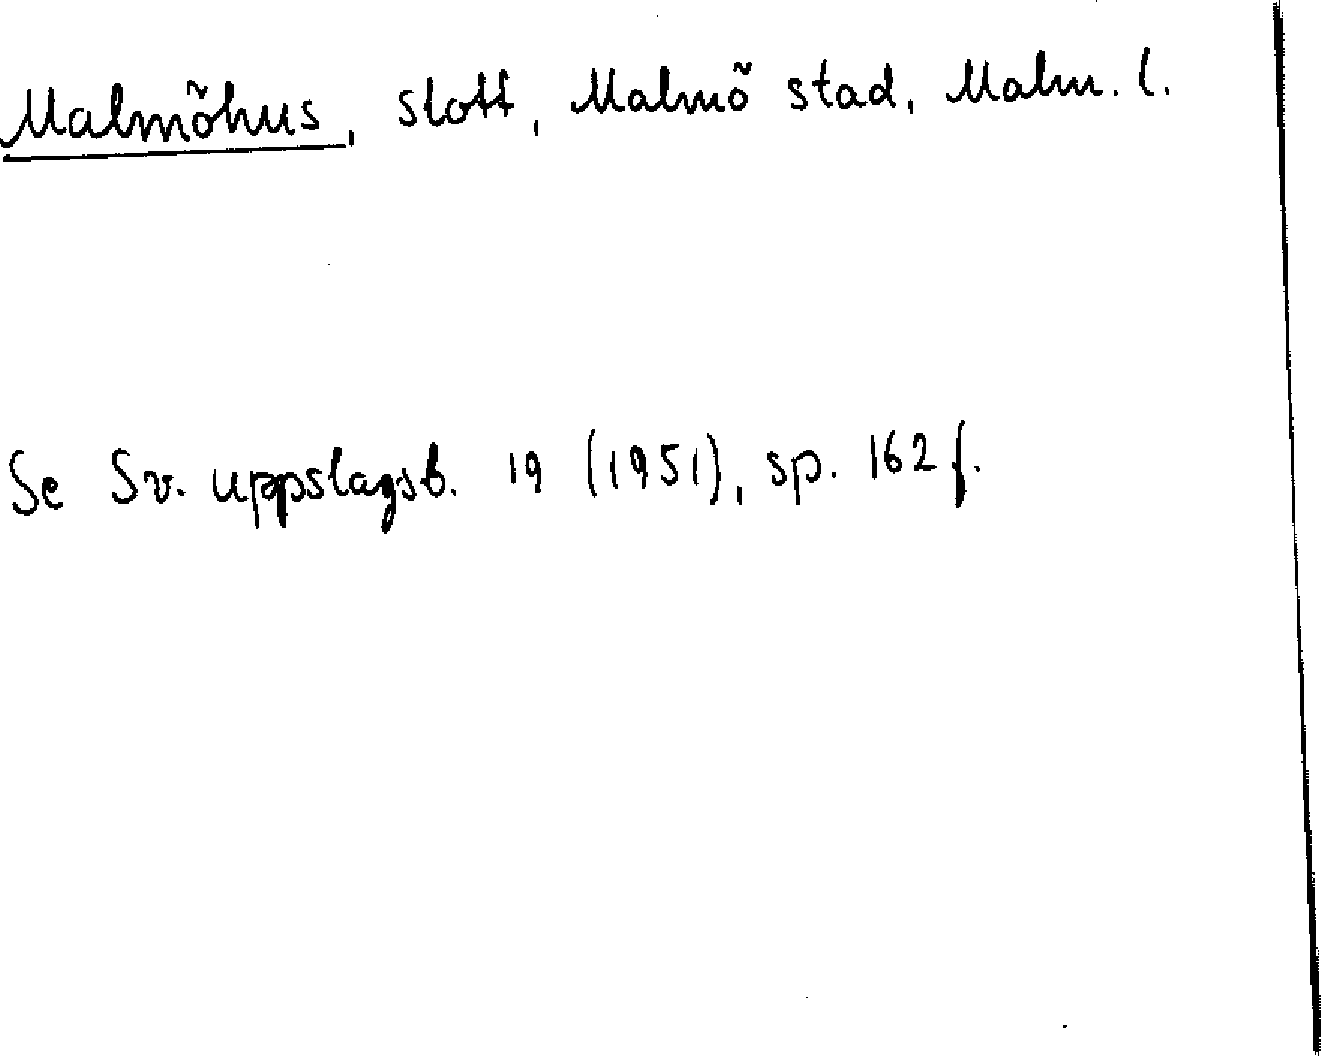 Malmöhus, slott, Malmö stad, Malm. l.
Se Sv. uppslagsb. 19 (1951), sp. 162 f.